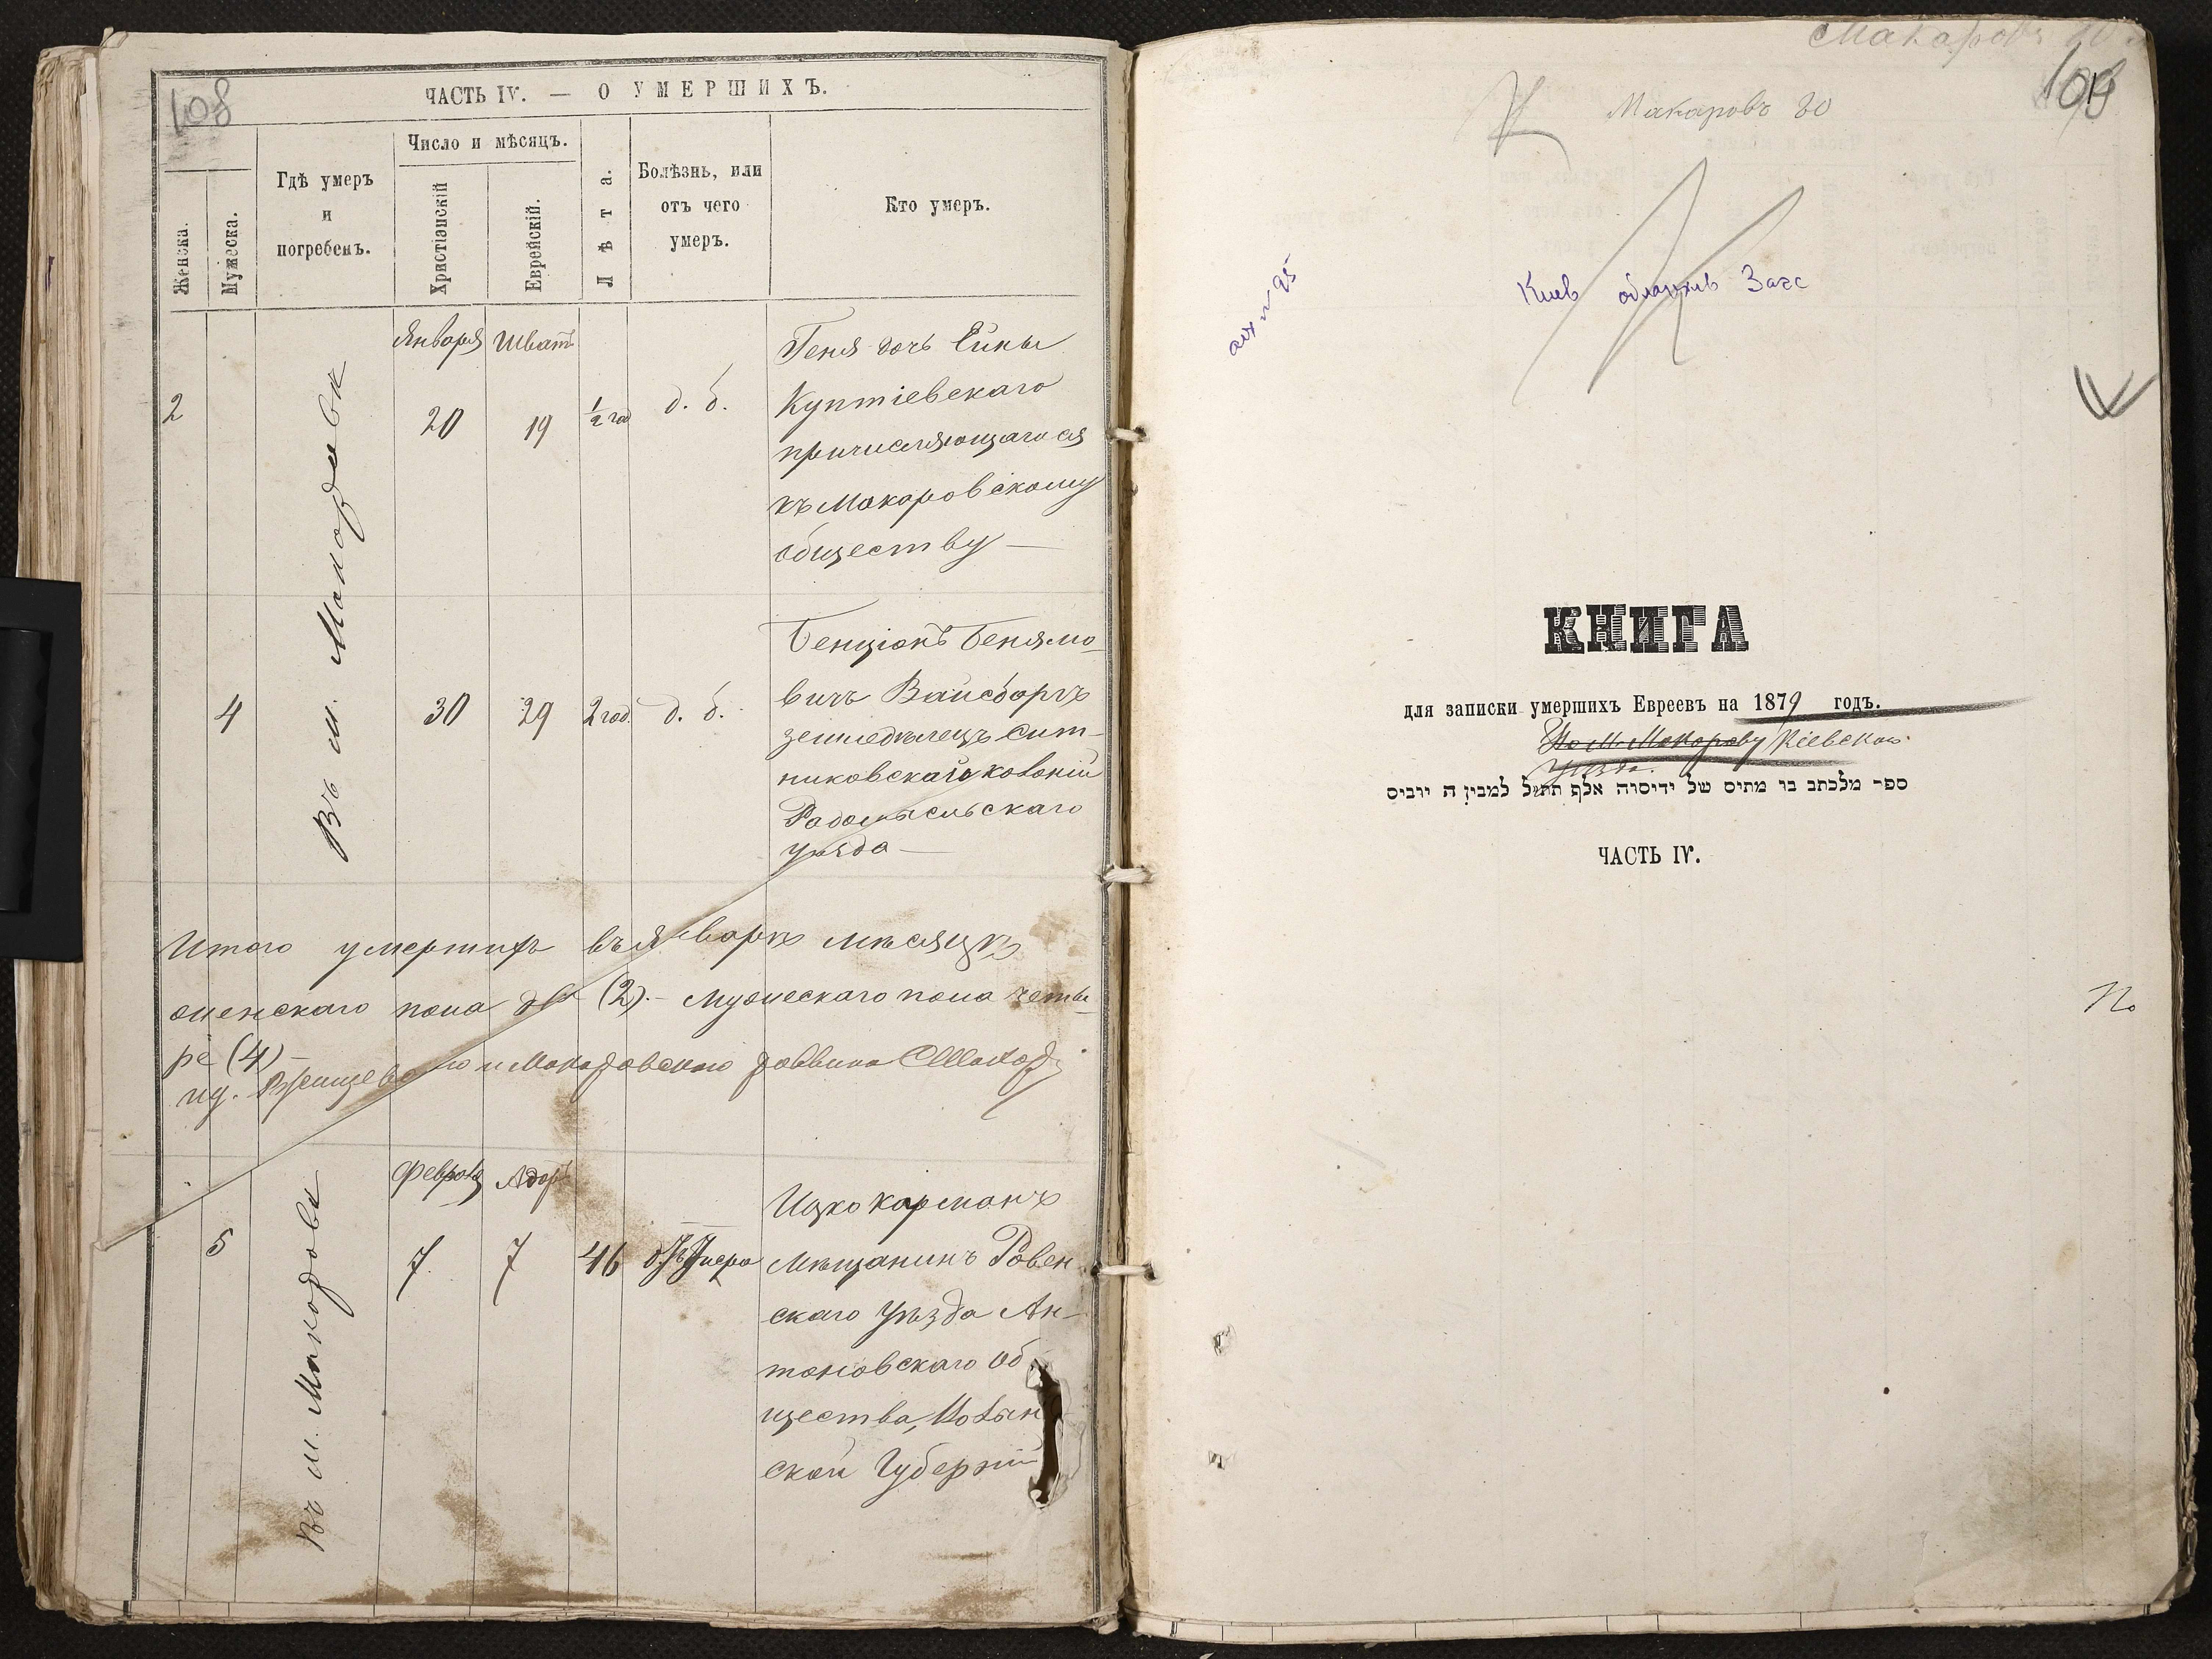 108
ЧАСТЬ IV. — О УМЕРШИХЪ.
Женска.
Мужеска.
Гдѣ умеръ
и
погребенъ.
Число и мѣсяцъ.
Христіанскій
Еврейскій.
Лѣта.
Болѣзнь, или
отъ чего
умеръ.
Кто умеръ.
Января Шватъ
2 20 19 ½ год д. б.
Въ м. Макаровѣ
Геня дочь Ейны
Куптіевскаго
причисляющагося
къ Макаровскому
обществу —
4 30 29 2 год. д. б.
Бенціонъ Бенямо-
вичъ Вайсборгъ
земледѣлецъ Сит-
никовской колоніи
Радомысльскаго
уѣзда —
Итого умершихъ въ Январѣ мѣсяцѣ
женскаго пола двѣ (2). — Мужескаго пола четы-
ре (4) —
и Макаровскаго раввина
Февраля Адаръ
5 7. 7 46
Въ м. Макаровѣ
Ицко Карманъ
Мѣщанинъ Ровен
скаго Уѣзда Ан-
тоновскаго Об-
щества, Волын
ской Губерніи
Макаровъ
109
Макаровъ 80
Киев облархив Загс
КНИГА
для записки умершихъ Евреевъ на 1879 годъ.
По м. Макарову Кіевскаго
уѣзда.
ספר מלכתב בו מתים של ידיסוה אלף תת״ל למבין ה יוביס
ЧАСТЬ IV.